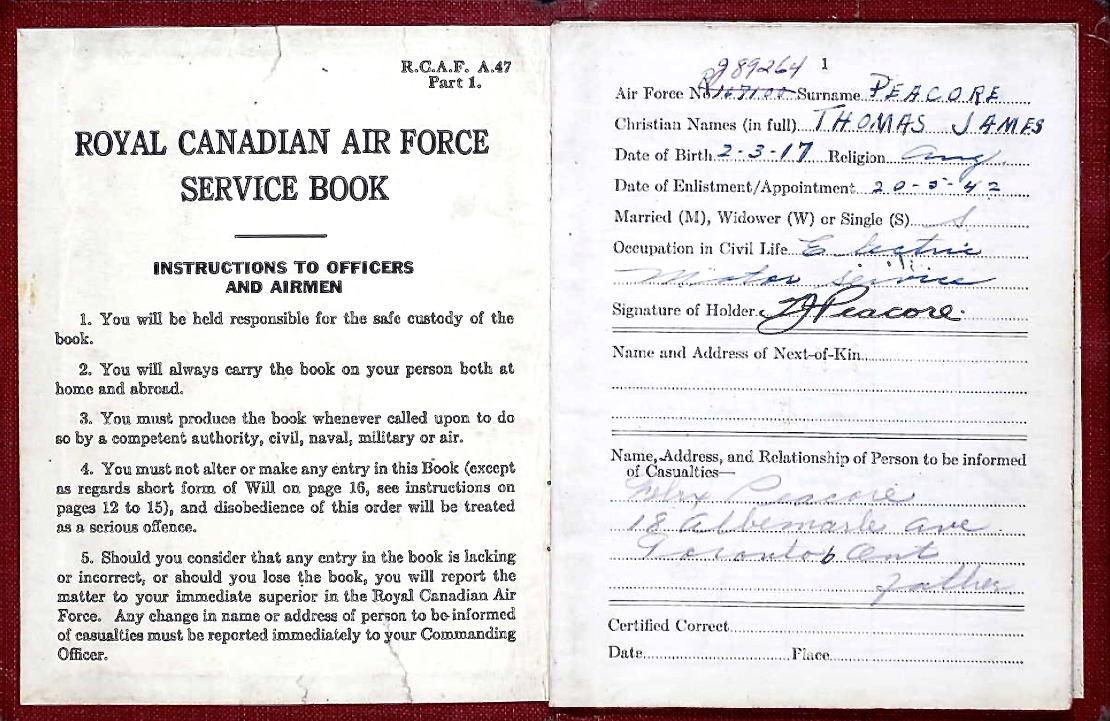 R.C.A.F. A.47
Part 1.
ROYAL CANADIAN AIR FORCE
SERVICE BOOK
INSTRUCTIONS TO OFFICERS
AND AIRMEN
1. You will be held responsible for the safe custody of the
book.
2. You will always carry the book on your person both at
home and abroad.
3. You must produce the book whenever called upon to do
so by a competent authority, civil, naval, military or air.
4. You must not alter or make any entry in this Book (except
as regards short form of Will on page 16, see instructions on
pages 12 to 15), and disobedience of this order will be treated
as a serious offence.
5. Should you consider that any entry in the book is lacking
or incorrect, or should you lose the book, you will report the
matter to your immediate superior in the Royal Canadian Air
Force. Any change in name or address of person to be informed
of casualties must be reported immediately to your Commanding
Officer.
J89264 1
Air Force No. Surname PEACORE
Christian Names (in full) THOMAS JAMES
Date of Birth 2-3-17 Religion Ang
Date of Enlistment/Appointment 20-5-42
Married (M), Widower (W) or Single (S) S
Occupation in Civil Life Electric
Motor Service
Signature of Holder TJ Peacore
Name and Address of Next-of-Kin
Name, Address, and Relationship of Person to be informed
of Casualties—
Peacore
18 Albemarle Ave
Toronto Ont
Father
Certified Correct
Date Place